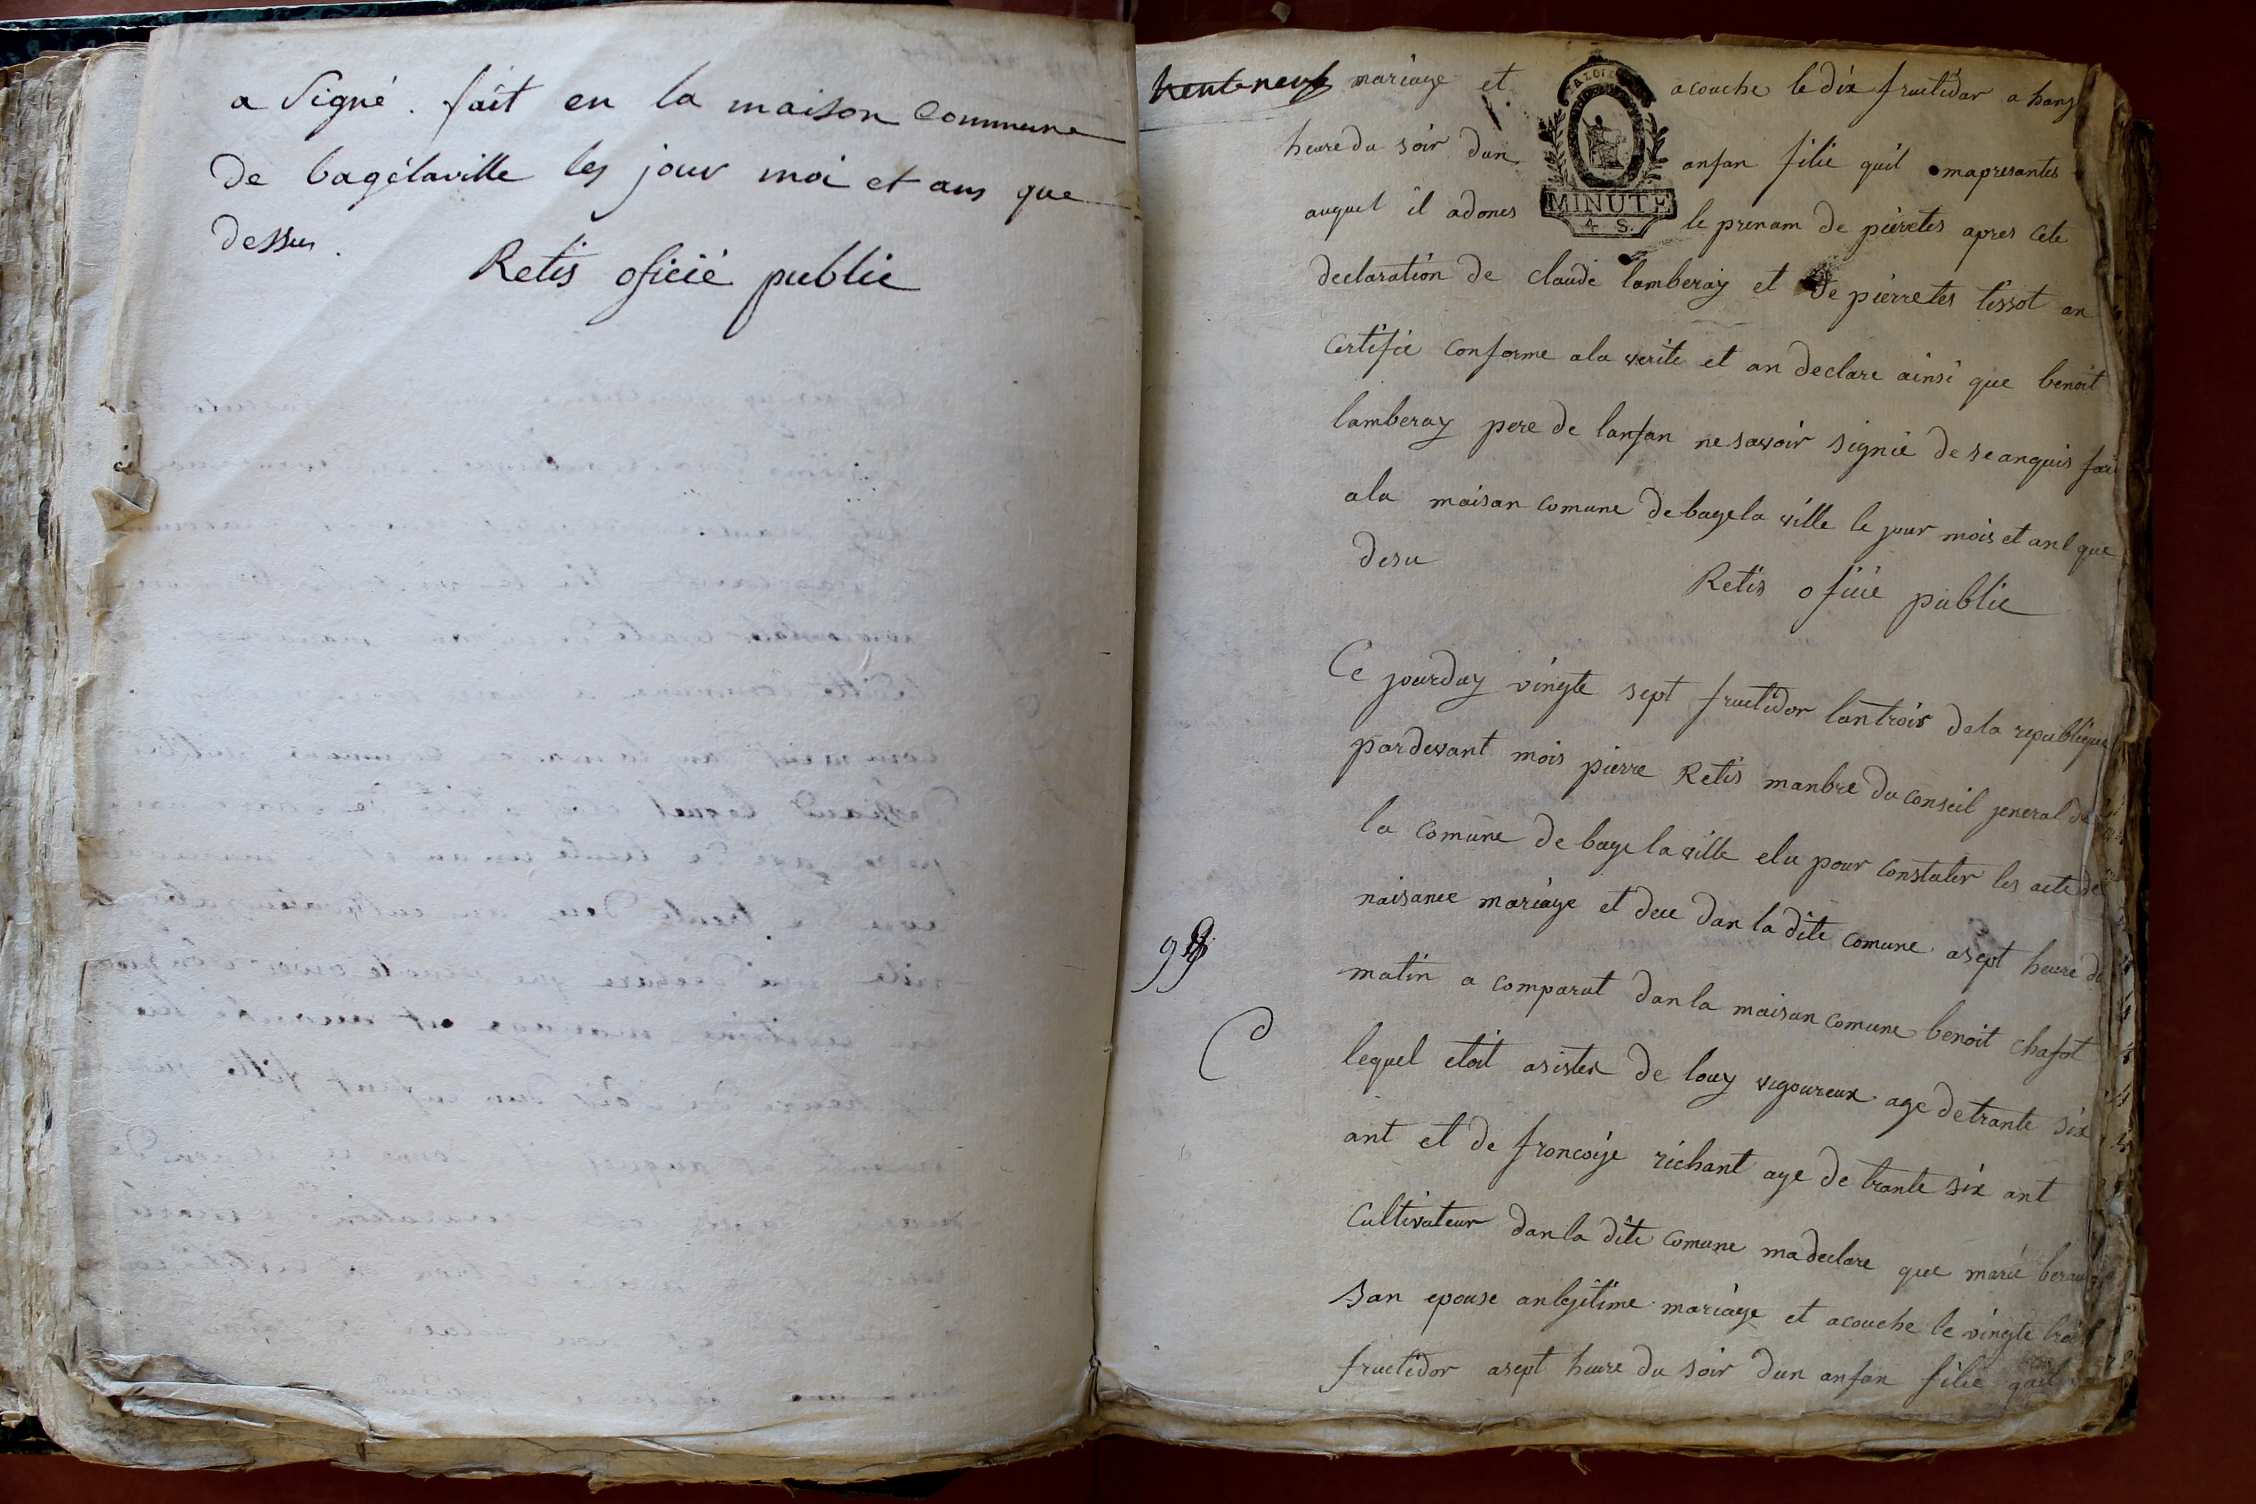 a Signé . fait en la maison Commune
De bagélaville les jour moi et ans que
Dessus .
Retis oficié public
trente neuf mariage et acouche le dix fructidor a honze
heure du soir dun anfan filie quil mapresantes
auquel il adones le prenom de pierretes apres cete
MINUTE
4 S.
declaration de claude lamberay et de pierretes tissot an
certifie conforme ala verite et an declare ainsi que benoit
lamberay pere de lanfan ne savoir signié de se anquis fai
ala maison comune de bagela ville le jour mois et anl que
desu
Retis oficié public
Ce jourduy vingte sept fructidor lantrois dela republique
pardevant mois pierre Retis manbre du conseil jeneral de
la comune de bage la ville elu pour constater les acte de
naisance mariage et dece dan la dite comune asept heure du
matin a comparut dan la maison comune benoit chafot
lequel etoit asister de louy vigoureux age de trante six
ant et de francoise richant age de trante six ant
cultivateur dan la dite comune ma declare que marie berau
san epouse anlegitime mariage et acouche le vingte trois
fructidor asept heure du soir dun anfan filie quil